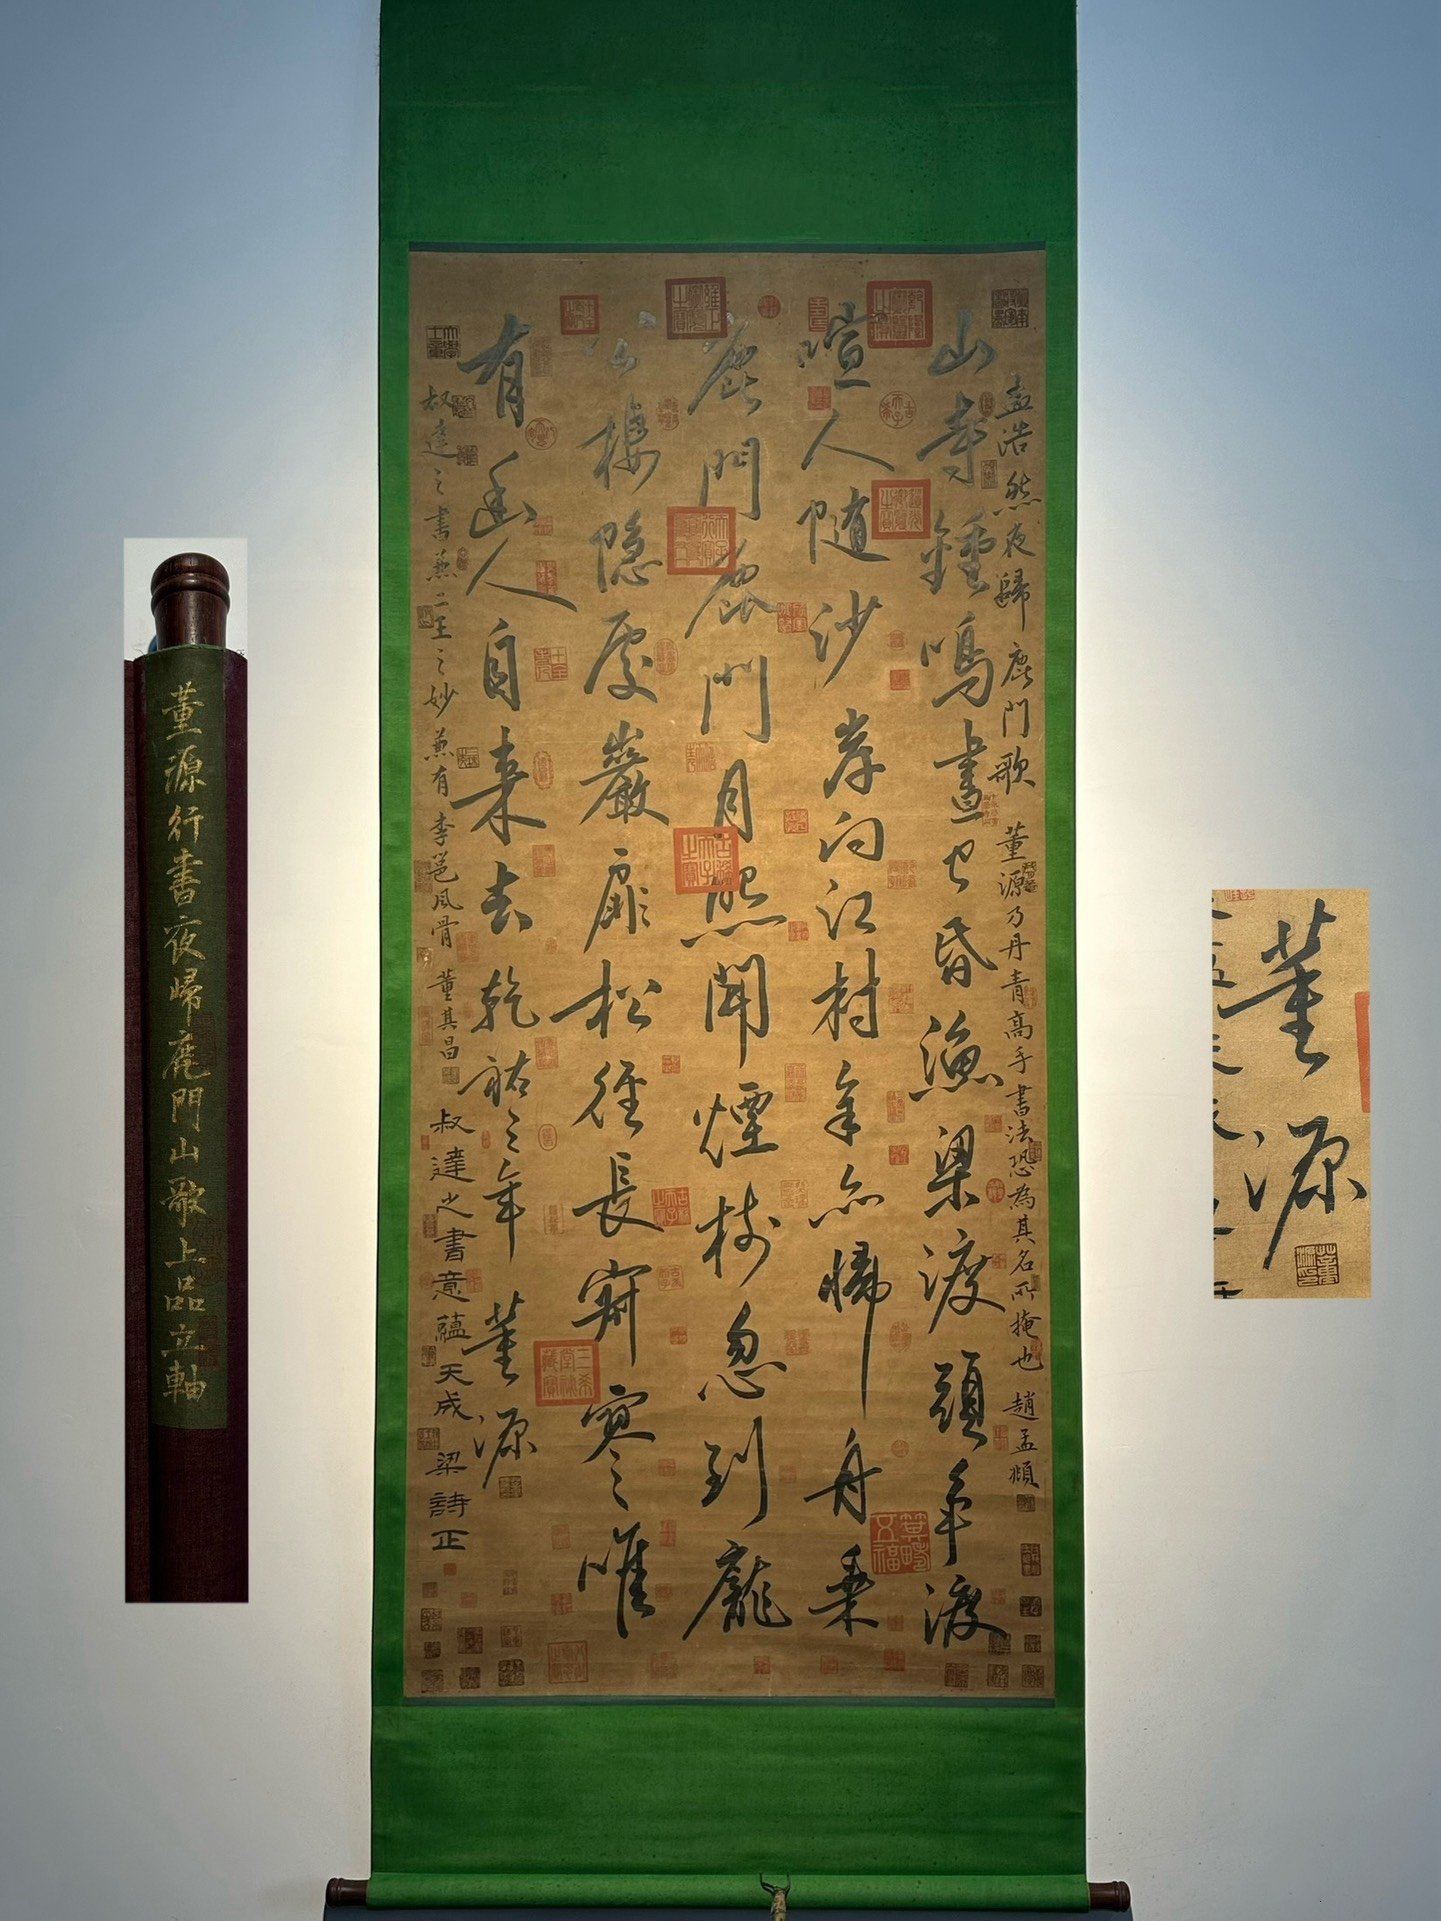 董源行書夜歸鹿門山歌上品立軸
孟浩然夜歸鹿門歌 董源乃丹青高手書法恐為其名所掩也 趙孟頫
山寺鍾鳴晝已昏漁梁渡頭爭渡
喧人随沙岸向江村余亦歸舟乘
鹿門鹿門月照開煙樹忽到龐
公棲隐處巖扉松徑長寂寥唯
有幽人自来去 乾祐三年 董源
叔達之書兼二王之妙兼有李邕風骨 董其昌
叔達之書意蘊天成 梁詩正
董源